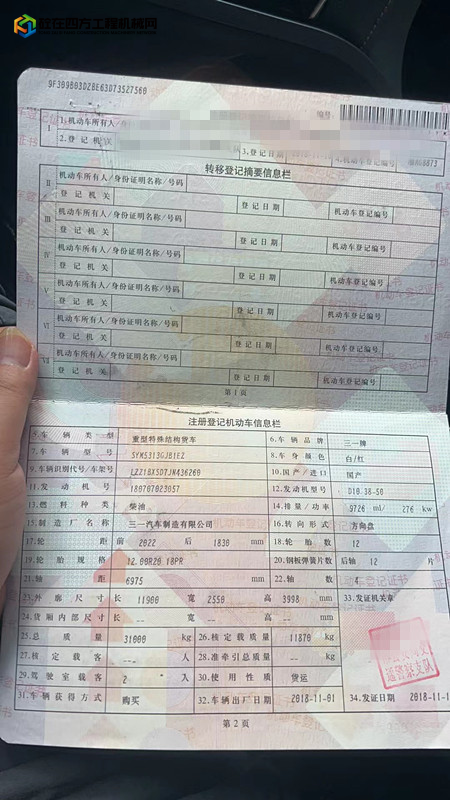 铁在四方工程机械网
9F309B03D2BE63D73527560
编号:
I 1.机动车所有人/身
2.登记机关 3.登记日期 4.机动车登记编号
转移登记摘要信息栏
II 机动车所有人/身份证明名称/号码
登记机关 登记日期 机动车登记编号
III 机动车所有人/身份证明名称/号码
登记机关 登记日期 机动车登记编号
IV 机动车所有人/身份证明名称/号码
登记机关 登记日期 机动车登记编号
V 机动车所有人/身份证明名称/号码
登记机关 登记日期 机动车登记编号
VI 机动车所有人/身份证明名称/号码
登记机关 登记日期 机动车登记编号
VII 机动车所有人/身份证明名称/号码
登记机关 登记日期 机动车登记编号
第1页
注册登记机动车信息栏
5.车辆类型 重型特殊结构货车 6.车辆品牌 三一牌
7.车辆型号 SYM5313GJB1EZ 8.车身颜色 白/红
9.车辆识别代号/车架号 LZZ1BXSD7JN436260 10.国产/进口 国产
11.发动机号 180707023057 12.发动机型号 D10.38-50
13.燃料种类 柴油 14.排量/功率 9726 ml/ 276 kw
15.制造厂名称 三一汽车制造有限公司 16.转向形式 方向盘
17.轮距 前 2022 后 1830 mm 18.轮胎数 12
19.轮胎规格 12.00R20 18PR 20.钢板弹簧片数 后轴 12 片
21.轴距 6975 mm 22.轴数 4
23.外廓尺寸 长 11900 宽 2550 高 3998 mm 33.发证机关章
24.货厢内部尺寸 长 -- 宽 -- 高 -- mm
25.总质量 31000 kg 26.核定载质量 11870 kg
27.核定载客 -- 人 28.准牵引总质量 -- kg
29.驾驶室载客 2 人 30.使用性质 货运
31.车辆获得方式 购买 32.车辆出厂日期 2018-11-01 34.发证日期 2018-11-1
通警察支队
第2页